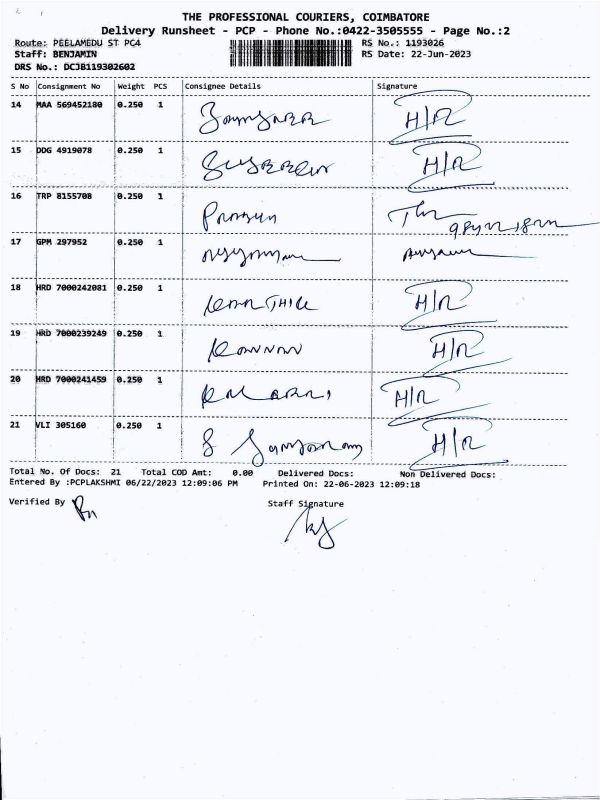 THE PROFESSIONAL COURIERS, COIMBATORE
Delivery Runsheet - PCP - Phone No.:0422-3505555 - Page No.:2
Route: PEELAMEDU ST PC4 RS No.: 1193026
Staff: BENJAMIN RS Date: 22-Jun-2023
DRS No.: DCJB119302602
S No Consignment No Weight PCS Consignee Details Signature
14 MAA 569452180 0.250 1 H/R
15 DDG 4919078 0.250 1 H/R
16 TRP 8155708 0.250 1
17 GPM 297952 0.250 1
18 HRD 7000242081 0.250 1 H/R
19 HRD 7000239249 0.250 1 Kannan H/R
20 HRD 7000241459 0.250 1 H/R
21 VLI 305160 0.250 1 H/R
Total No. Of Docs: 21 Total COD Amt: 0.00 Delivered Docs: Non Delivered Docs:
Entered By :PCPLAKSHMI 06/22/2023 12:09:06 PM Printed On: 22-06-2023 12:09:18
Verified By
Staff Signature